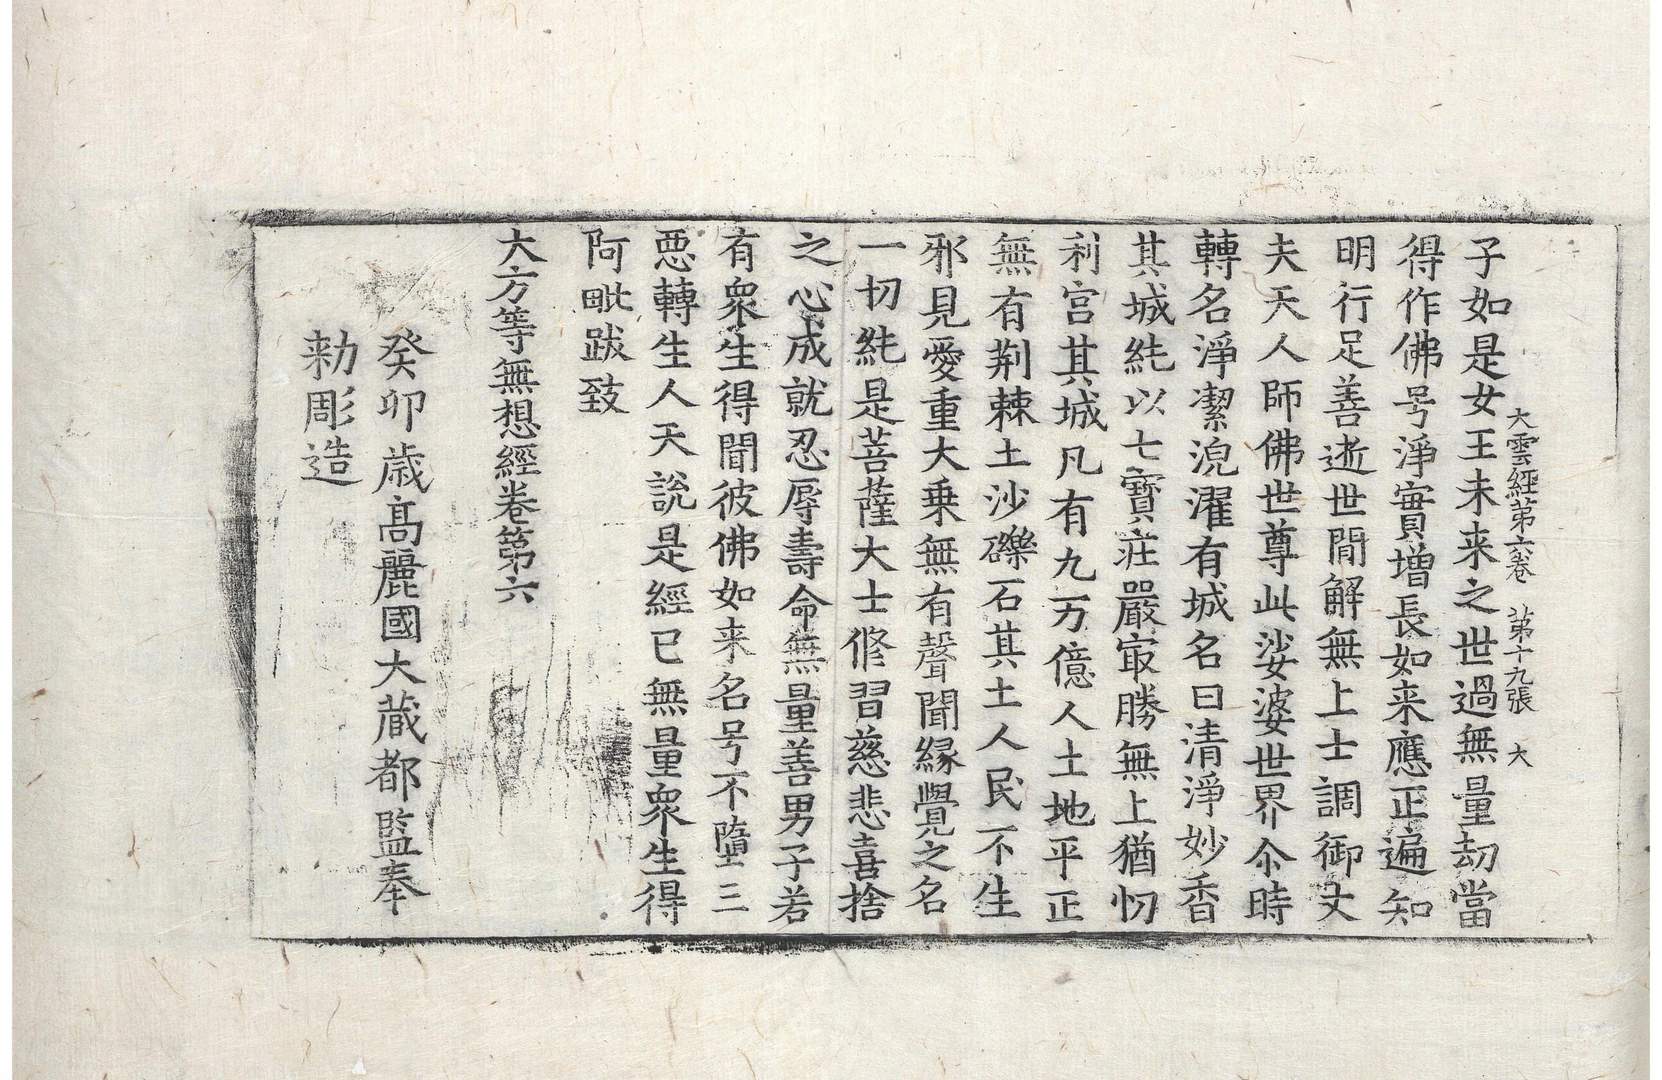 大雲經第六卷 第十九張 大
子如是女王未来之世過無量劫當
得作佛号淨實增長如来應正遍知
明行足善逝世閒解無上士調御丈
夫天人師佛世尊此娑婆世界尒時
轉名淨潔浼濯有城名曰清淨妙香
其城純以七寶莊嚴㝡勝無上猶忉
利宫其城凡有九万億人土地平正
無有荆棘土沙礫石其土人民不生
邪見愛重大乗無有聲聞縁覺之名
一切純是菩薩大士修習慈悲喜捨
之心成就忍辱壽命無量善男子若
有衆生得聞彼佛如来名号不墮三
惡轉生人天說是經已無量衆生得
阿毗跋致
大方等無想經卷第六
癸卯歳髙麗國大蔵都監奉
勑彫造